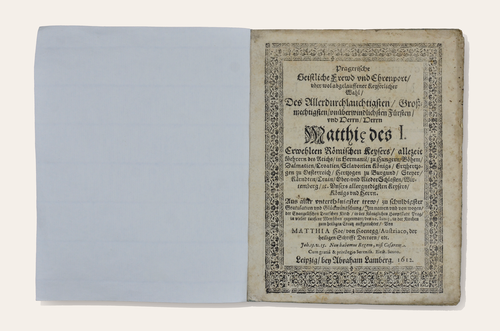 Pragerische
Geistliche Frewd und Ehrenport/
uber wolabgelauffener Keyserlicher
Wahl/
Des Allerdurchlauchtigsten/ Groß-
mechtigsten/ unüberwindlichsten Fürsten/
und Herrn/ Herrn
Matthię des I.
Erwehlten Römischen Keysers/ allezeit
Mehrern des Reichs/ in Germanien/ zu Hungern/ Böhem/
Dalmatien/ Croatien/ Sclavonien Königs/ Ertzhertzo-
gen zu Oesterreich/ Hertzogen zu Burgund/ Steyer/
Kärndten/ Crain/ Ober und Nieder Schlesien/
Unsers allergnedigsten Keysers/
Königs und Herrn.
Aus aller unterthänigster trew/ in schuldigster
Gratulation und Glückwündschung/
MATTHIA Hoe/ von Hoenegg/ Austriaco, der
heiligen Schrifft Doctorn/ etc.
Non habemus Regem, nisi Caesarem.
Leipzig/ bey Abraham Lamberg. 1612.